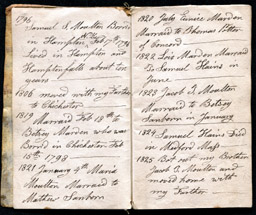 1796
Samuel S Moulton Bornd
in Hampton Feb 9th 1796
Lived in Hampton and
Hampton falls about ten
years
1806 moved with my Father
to Chichester
1819
Marraid Feb 18th to
Betsey Marden who was
Bornd in Chichester Feb
15th 1798
1821 January 9th Maria
Moulton Marraid to
Mathew Sanborn
1820 July Eunice Marden
Marraid to Thomas Potter
of Concord
1822 Lois Marden Marraid
to Samuel Hains in
June
1823 Jacob S Moulton
Marraid to Betsey
Sanborn in January
1824 Samuel Hains Died
in Medford Mass
1825 Bot out my Brother
Jacob S Moulton and
moved home with
my Father